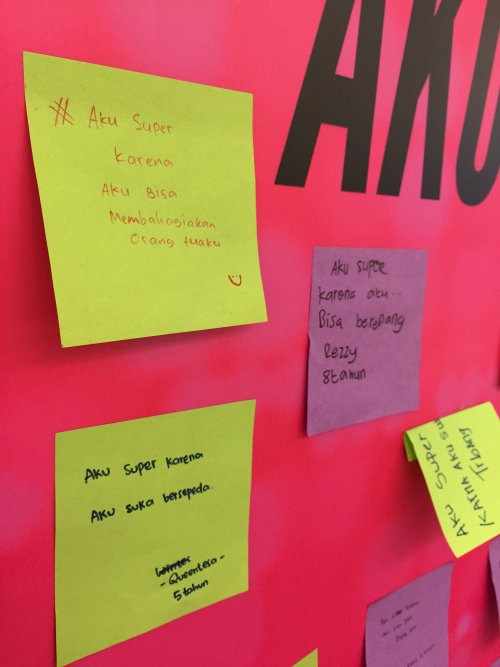 AKU
# AKU SUPER
karena
AKU BISA
Membahagiakan
Orang tuaku
AKU SUPER
karena aku...
Bisa berenang
Rezzy
8 tahun
AKU SUPER KARENA
AKU SUKA bersepeda.
- Queenlesa -
5 tahun
AKU SUPER
KARNA AKU SU